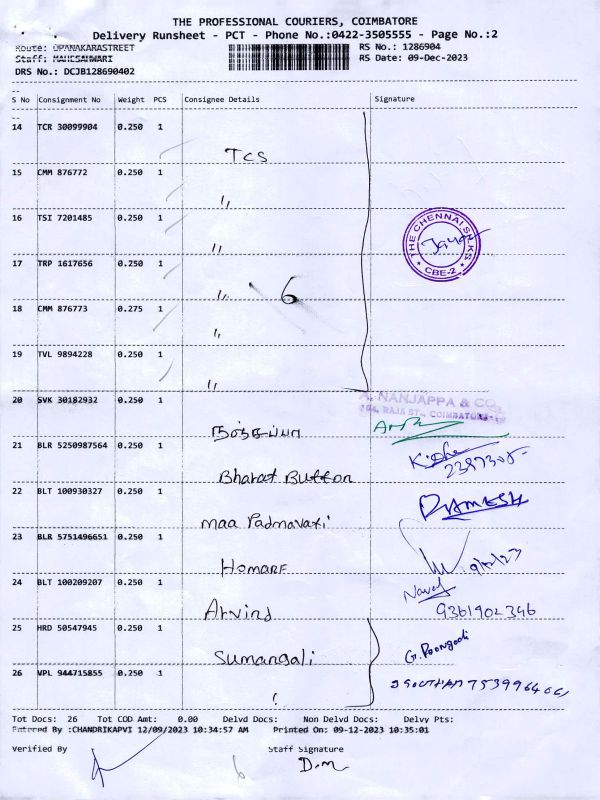 THE PROFESSIONAL COURIERS, COIMBATORE
Delivery Runsheet - PCT - Phone No.:0422-3505555 - Page No.:2
Route: OPANAKARASTREET RS No.: 1286904
Staff: MAHESANWARI RS Date: 09-Dec-2023
DRS No.: DCJB128690402
S No Consignment No Weight PCS Consignee Details Signature
14 TCR 30099904 0.250 1
TCS
15 CMM 876772 0.250 1
"
16 TSI 7201485 0.250 1
"
THE CHENNAI SILKS
CBE-2
17 TRP 1617656 0.250 1
" 6
18 CMM 876773 0.275 1
"
19 TVL 9894228 0.250 1
"
20 SVK 30182932 0.250 1
A. NANJAPPA & CO.
RAJA ST., COIMBATORE
21 BLR 5250987564 0.250 1
Bharat Button
22 BLT 100930327 0.250 1
maa Padmavati RAMESH
23 BLR 5751496651 0.250 1
24 BLT 100209207 0.250 1
Arvind 9361902346
25 HRD 50547945 0.250 1
Sumangali G. Poongodi
26 VPL 944715855 0.250 1
Tot Docs: 26 Tot COD Amt: 0.00 Delvd Docs: Non Delvd Docs: Delvy Pts:
Entered By :CHANDRIKAPVI 12/09/2023 10:34:57 AM Printed On: 09-12-2023 10:35:01
Verified By Staff Signature
D.m